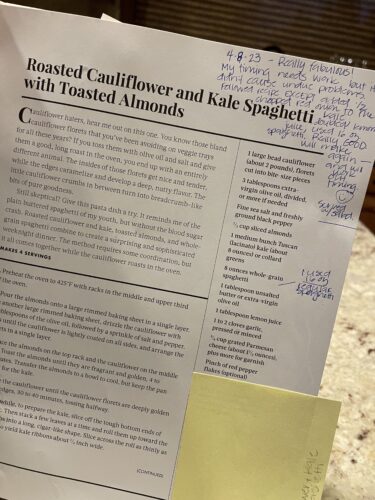 4-8-23 - Really fabulous!
My timing needs work but it
didn't cause undue problems. I
followed recipe except added 1/2
chopped red onion to the
kale & doubled lemon
juice, used 16 oz
spaghetti. Really GOOD
Will make
again -
timing
Serve
w/salad
Roasted Cauliflower and Kale Spaghetti
with Toasted Almonds
Cauliflower haters, hear me out on this one. You know those bland
cauliflower florets that you've been avoiding on veggie trays
for all these years? If you toss them with olive oil and salt and give
them a good, long roast in the oven, you end up with an entirely
different animal. The insides of those florets go nutty and tender,
while the edges caramelize and develop a deep, nutty flavor. The
little cauliflower crumbs in between turn into breadcrumb-like
bits of pure goodness.
skeptical? Give this pasta dish a try. It reminds me of the
plain buttered spaghetti of my youth, but without the blood sugar
crash. Roasted cauliflower and kale, toasted almonds, and whole-
grain spaghetti combine to create a surprising and sophisticated
weeknight dinner. The method requires some coordination, but
it all comes together while the cauliflower roasts in the oven.
MAKES 4 SERVINGS
Preheat the oven to 425°F with racks in the middle and upper third
of the oven.
Pour the almonds onto a large rimmed baking sheet in a single layer.
another large rimmed baking sheet, drizzle the cauliflower with
tablespoons of the olive oil, followed by a sprinkle of salt and pepper.
until the cauliflower is lightly coated on all sides, and arrange the
in a single layer.
the almonds on the top rack and the cauliflower on the middle
Toast the almonds until they are fragrant and golden, 4 to
Transfer the almonds to a bowl to cool, but keep the pan
for the kale.
the cauliflower until the cauliflower florets are deeply golden
edges, 30 to 40 minutes, tossing halfway.
to prepare the kale, slice off the tough bottom ends of
Then stack a few leaves at a time and roll them up toward the
into a long, cigar-like shape. Slice across the roll as thinly as
to yield kale ribbons about ⅛ inch wide.
(CONTINUED)
1 large head cauliflower
(about 2 pounds), florets
cut into bite-size pieces
3 tablespoons extra-
virgin olive oil, divided,
or more if needed
Fine sea salt and freshly
ground black pepper
½ cup sliced almonds
1 medium bunch Tuscan
(lacinato) kale (about
8 ounces) or collard
greens
8 ounces whole-grain
spaghetti
I used
16 oz
regular
spaghetti
1 tablespoon unsalted
butter or extra-virgin
olive oil
1 tablespoon lemon juice
1 to 2 cloves garlic,
pressed or minced
cup grated Parmesan
cheese (about 1½ ounces),
plus more for garnish
Pinch of red pepper
flakes (optional)